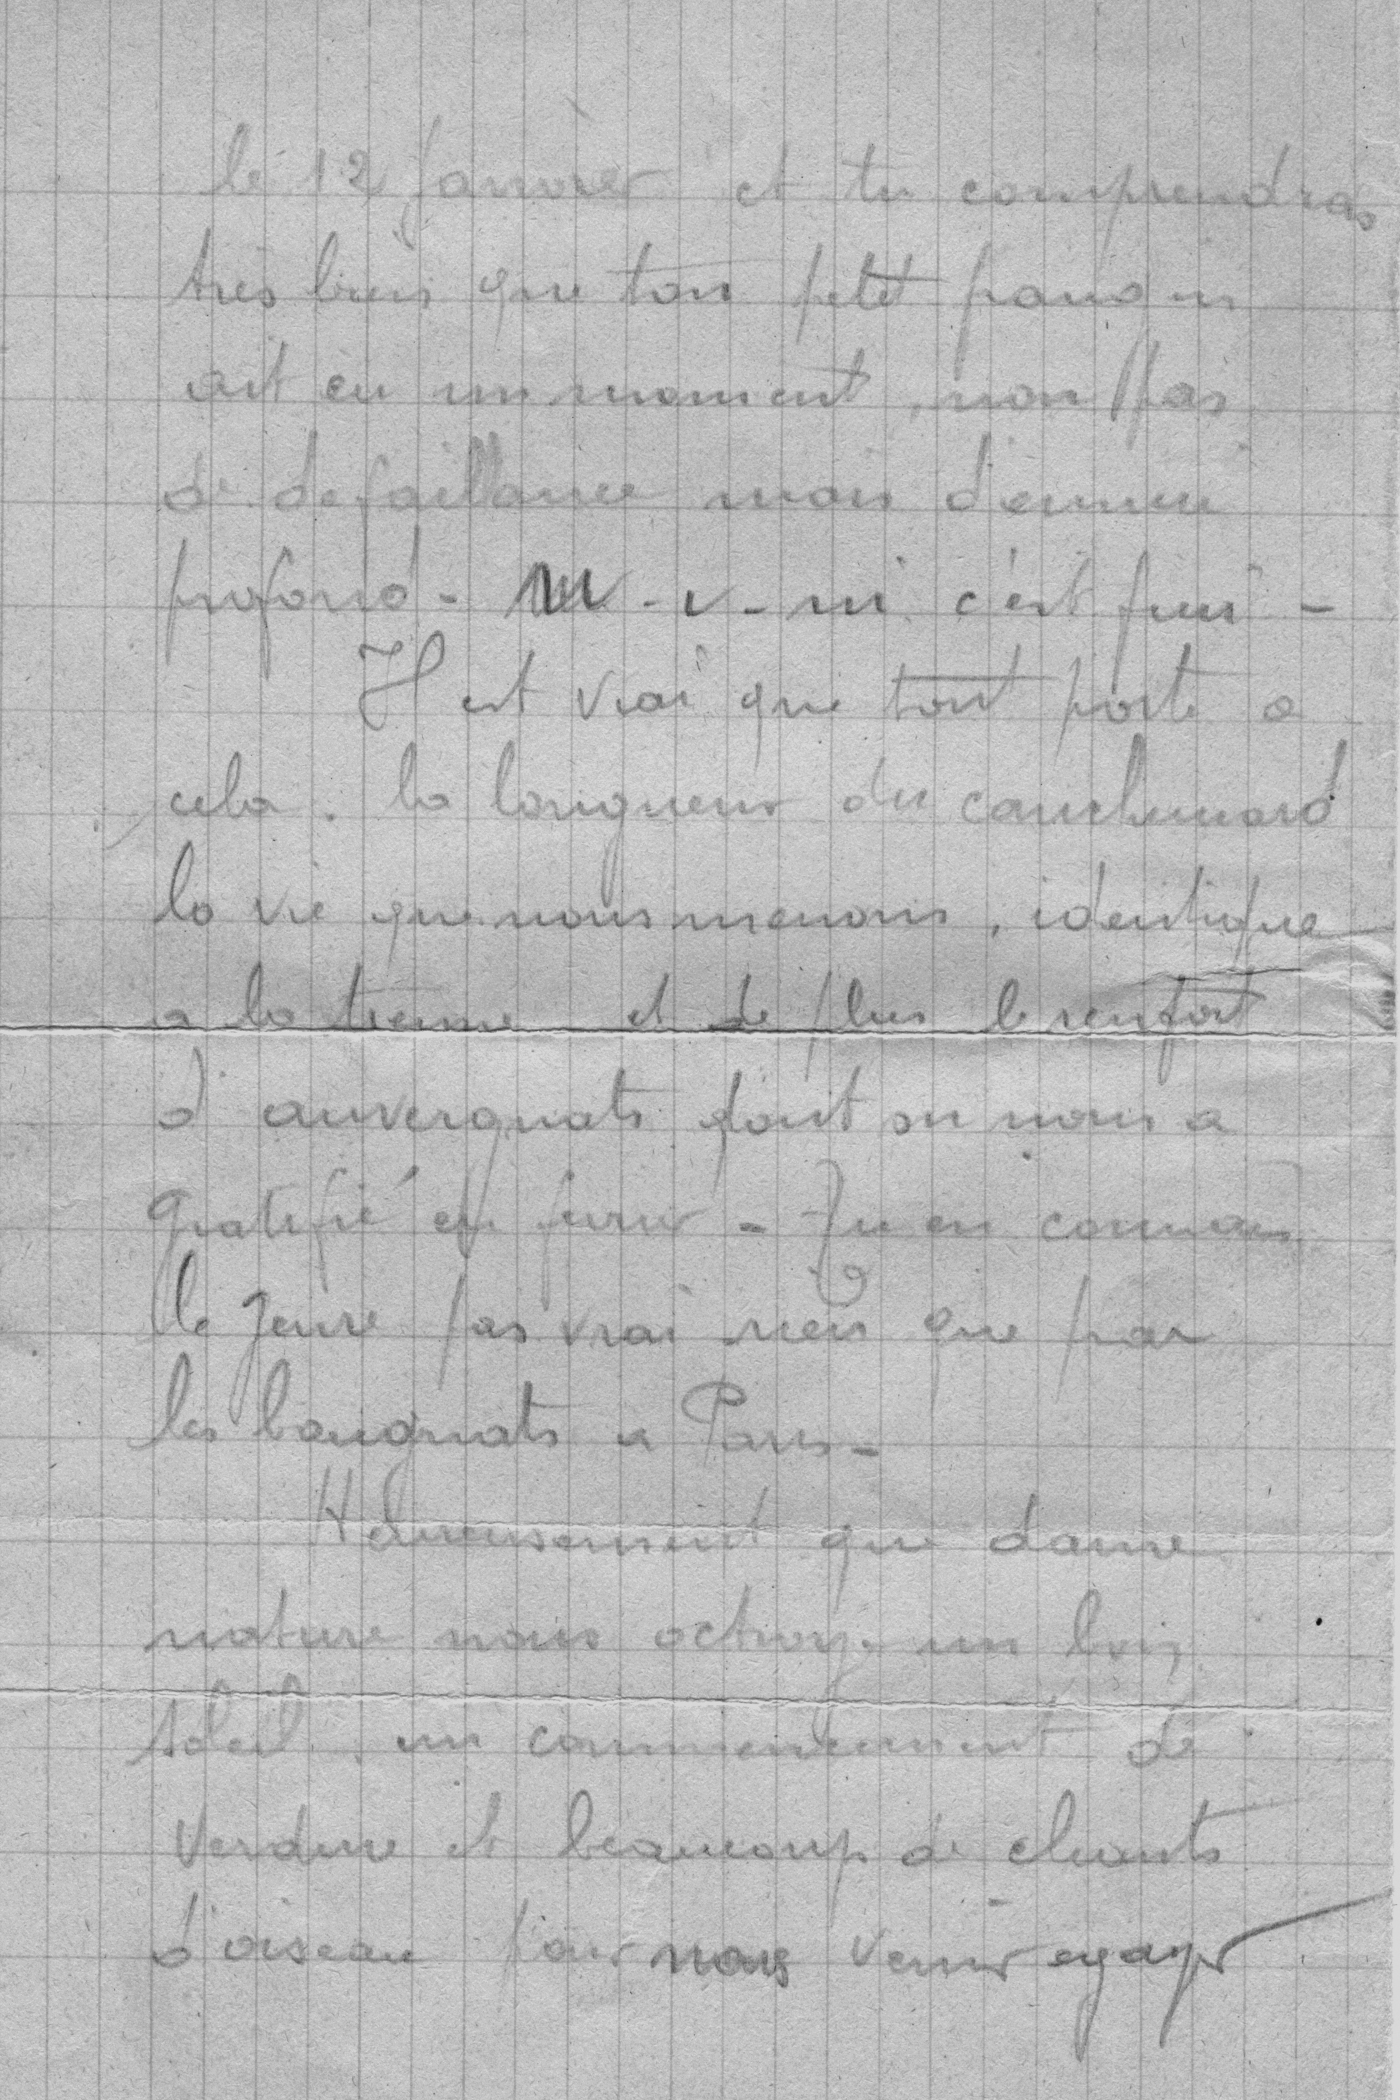 le 12 Janvier et tu comprendras
très bien que ton petit frangin
ait eu un moment, non pas
de defaillance mais d'ennui
profond - N - i - ni c'est fini -
Il est vrai que tout porte a
cela. la longueur du cauchemard
la vie que nous menons, identique
a la tienne et de plus le renfort
d'auvergnats dont on nous a
gratifié en fevrier - Tu en connais
le genre pas vrai rien que par
les bougnats a Paris -
Heureusement que dame
nature nous octroye un bon
soleil, un commencement de
verdure et beaucoup de chants
d'oiseau pour nous venir egayer